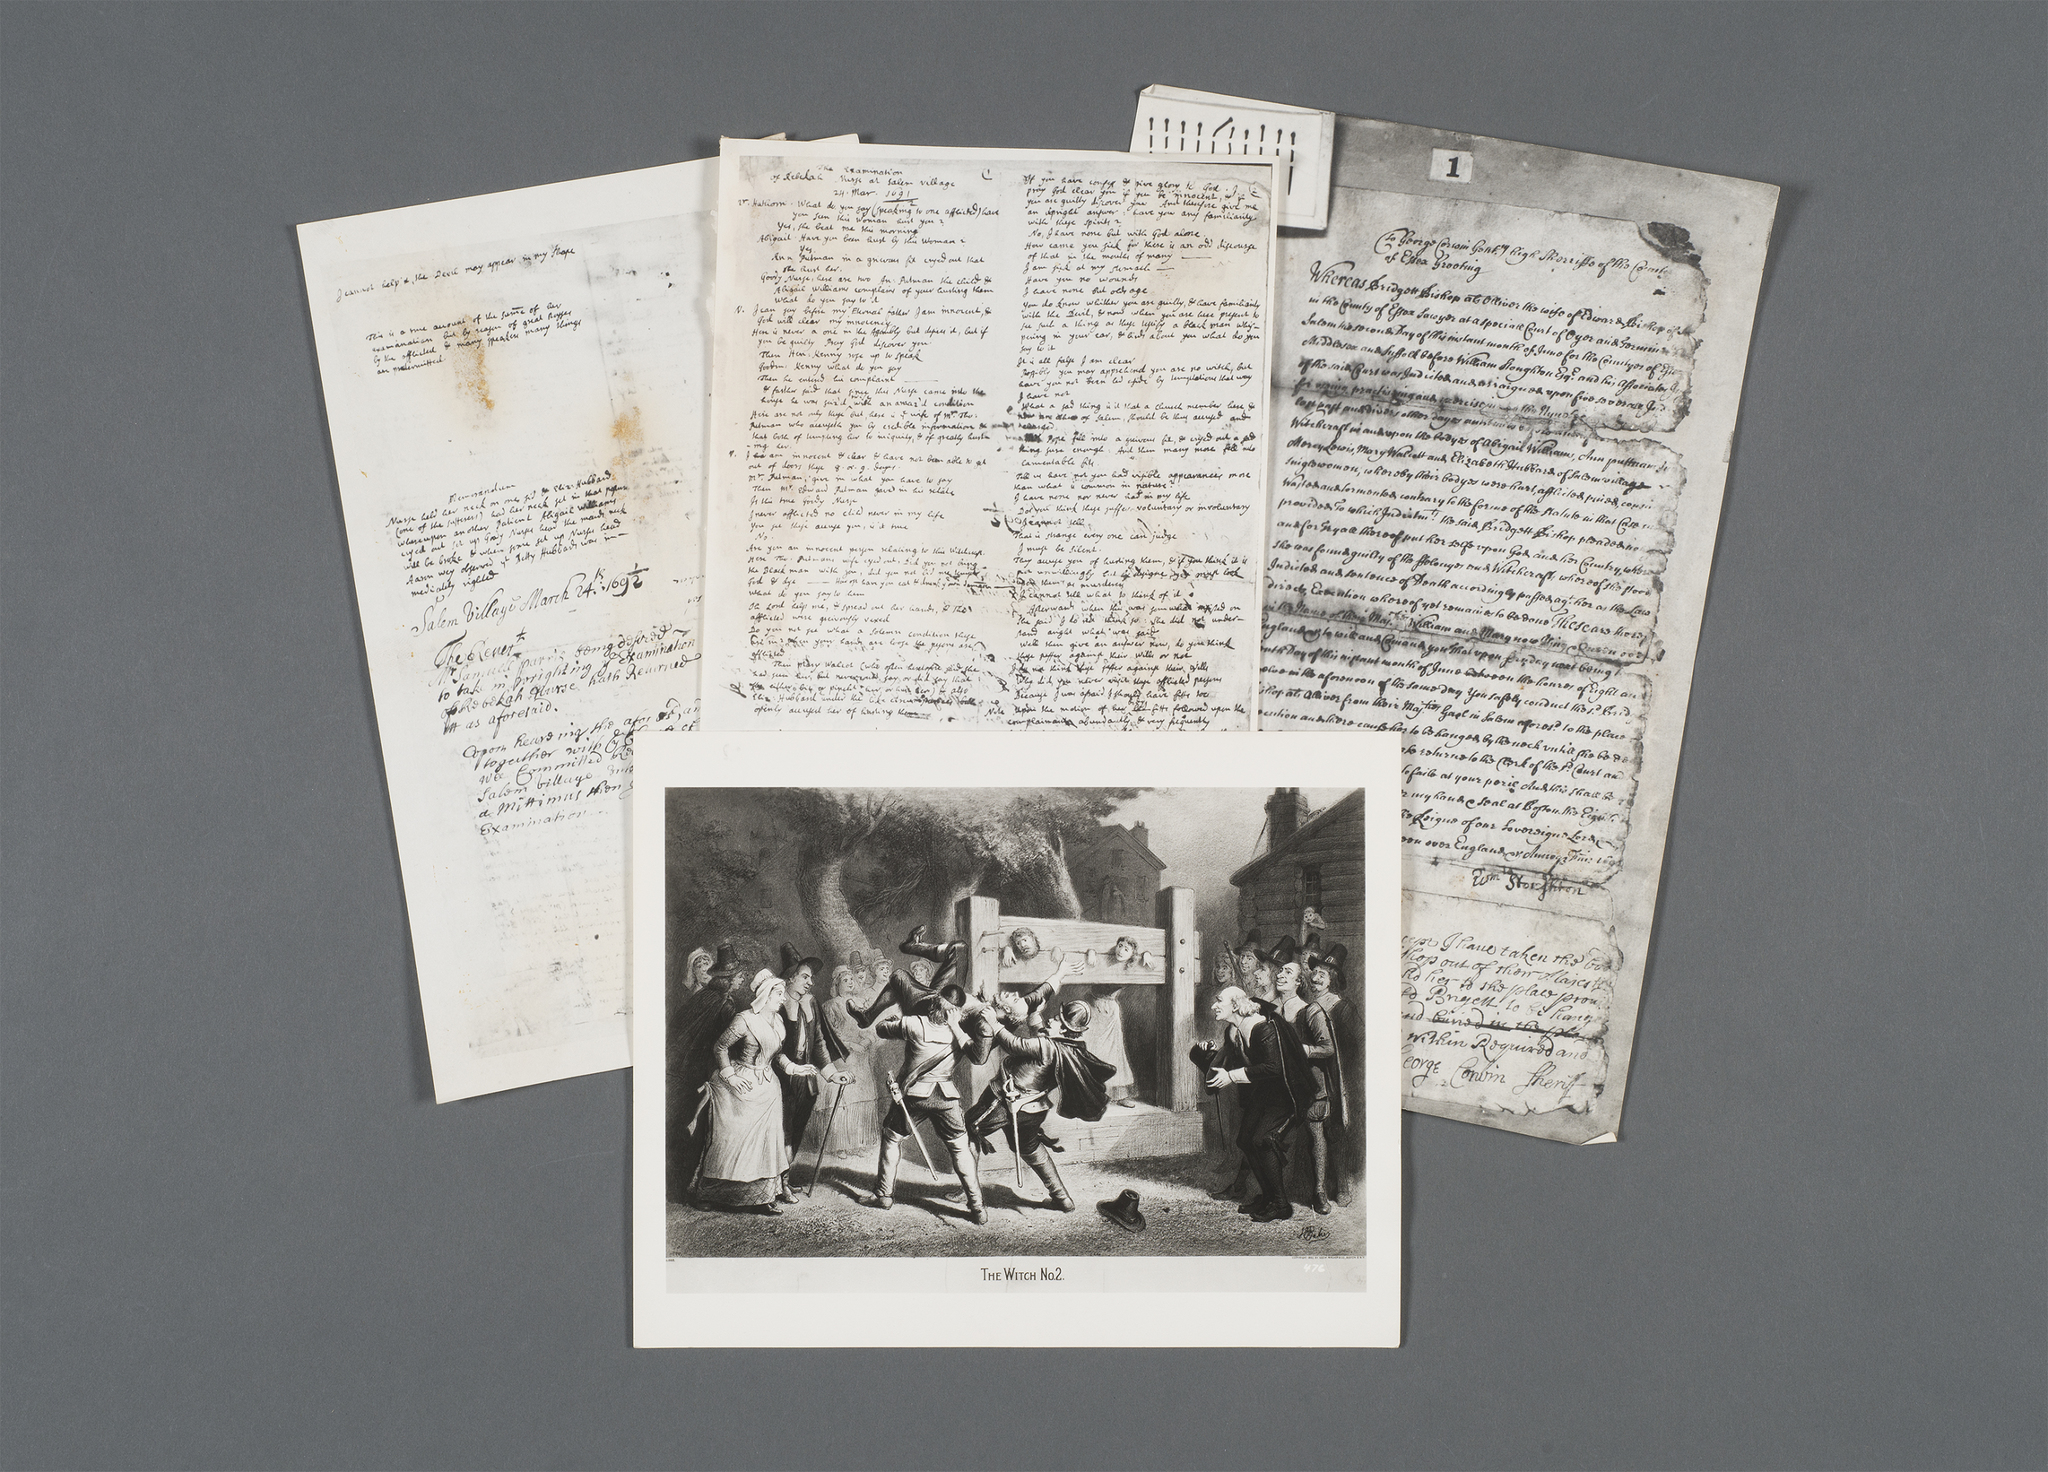 I cannot help it, the Devil may appear in my shape
This is a true account of the sume of her
examination but by reason of great noyses
by the afflicted & many speakers many things
are pretermitted
Memorandum
Nurse held her neck on one side & Eliz: Hubbard
(one of the sufferers) had her neck set in that posture
whereupon another Patient Abigail Williams
cryed out set up Goody Nurse's head the maid's neck
will be broke & when some set up Nurse head
Aaron wey observed yt Betty Hubbards was im-
mediatly righted
Salem Village March 24th 169½
The Reverᵗ
Mr Samuell parris being desired
to take in wrighting ye Examination
of Rebekah Nurse hath Returned
itt as aforesaid.
Upon heareing the afores
together with
wee Committed Re
Salem Village
a Mittimus then
Examination...
The Examination
of Rebekah Nurse at Salem village
24. Mar. 1691
Mr. Hathorn. What do you say (speaking to one afflicted) have
you seen this Woman hurt you?
Yes, she beat me this morning
Abigail. Have you been hurt by this Woman?
Yes
Ann Putman in a grievous fit cryed out that
she hurt her.
Goody Nurse, here are two An: Putman the child &
Abigail Williams complains of your hurting them
What do you say to it
N. I can say before my Eternal father I am innocent, &
God will clear my innocency
Here is never a one in the Assembly but desires it, but if
you be guilty Pray God discover you.
Then Hen: Kenny rose up to speak
Goodm: Kenny what do you say
Then he entered his complaint
& farther said that since this Nurse came into the
house he was seiz'd with an amaz'd condition
Here are not only these but here is ye wife of Mr Tho:
Putman who accuseth you by credible information &
that both of tempting her to iniquity, & of greatly hurt-
ing her.
N. I am innocent & clear & have not been able to get
out of doors these 8. or 9. dayes.
Mr. Putman: give in what you have to say
Then Mr. Edward Putman gave in his relate
Is this true Goody Nurse
I never afflicted no child never in my life
You see these accuse you, is it true
No.
Are you an innocent person relating to this Witchcraft.
Here Tho: Putmans wife cryed out, Did you not bring
the Black man with you, did you not bid me tempt
God & dye
What do you say to them
Oh Lord help me, & spread out her hands, & the
afflicted were greivously vexed
Do you not see what a Solemn condition these
are in? when your hands are loose the persons are
afflicted
Then Mary Walcot (who often heretofore said she
had seen her, but never could say or did say that
she either bit or pincht her, or hurt her) & also
Eliz: Hubbard under the like circumstances both
openly accused her of hurting them
If you have confest & give glory to God. I
pray God clear you if you be innocent, & if
you are guilty discover you. And therefore give me
an upright answer: have you any familiarity
with these spirits?
No, I have none but with God alone.
How came you sick for there is an odd discourse
of that in the mouths of many
I am sick at my stumach
Have you no wounds
I have none but old age
You do Know whether you are guilty, & have familiarity
with the Devil, & now when you are here present to
see such a thing as these testify a black man whis-
pering in your ear, & birds about you what do you
say to it
It is all false I am clear
Possibly you may apprehend you are no witch, but
have you not been led aside by temptations that way
I have not
What a sad thing is it that a church member here &
of Salem, should be thus accused and
fell into a grievous fit, & cryed out a sad
thing sure enough. And then many more fell into
lamentable fits.
Tell us have not you had visible appearances more
than what is common in nature?
I have none nor never had in my life
Do you think these suffer voluntary or involuntary
I cannot tell
That is strange every one can judge
I must be silent
They accuse you of hurting them, & if you think it is
not unwillingly but by designe, you must look
upon them as murderers
I cannot tell what to think of it
Afterwards when this was somewhat insisted on
she said I do not think so: she did not under-
stand aright what was said
Well then give an answer now, do you think
these suffer against their wills or not
I do not think these suffer against their wills
Why did you never visit these afflicted persons
Because I was afraid I should have fits too
Upon the motion of her body fits followed upon the
complainants abundantly & very frequently
1
To George Corwin Gentm high Sherriffe of the County
of Essex Greeting
Whereas Bridgett Bishop als Olliver the wife of Edward Bishop of
in the County of Essex Sawyer at a speciall Court of Oyer and Terminer
Salem the second Day of this instant month of June for the Countyes of Essex
Middlesex and Suffolk before William Stoughton Esqr. and his Associates
of the said Court was Indicted and arraigned upon five severall
for useing practiseing and exerciseing
last past and divers other dayes
Witchcraft in and upon the bodyes of Abigail Williams, Ann puttnam
Mercy Lewis, Mary Walcott and Elizabeth Hubbard of Salem village
singlewomen, whereby their bodyes were hurt, afflicted pined, consu
wasted and tormented contrary to the forme of the Statute in that Case
provided To which Indictmts the said Bridgett Bishop pleaded no
and for Tryall thereof put her selfe upon God and her Country, where
she was found guilty of the ffelonyes and Witchcrafts whereof she stood
Indicted and sentence of Death accordingly passed agt her as the Law
directs, Execution whereof yet remaines to be done These are there
in the Name of their Majties William and Mary now King & Queen over
England &c to will and Comand you That upon fryday next being
Day of this instant month of June between the houres of Eight and
in the aforenoon of the same day You safely conduct the sd Bridg
shop als Olliver from their Majties Gaol in Salem aforesd to the place
cution and there cause her to be hanged by the neck untill she be de
returne to the Clerk of the sd Court an
faile at your perill And this shall be
my hand & seal at Boston the Eight
Reigne of our Sovereigne Lord
over England &c Annoqe Dm: 1692
Wm Stoughton
I have taken the bo
shop out of their Majest
her to the place prov
Brigett to be hang
and buried in the pla
within Required and
George Corwin Sheriff
THE WITCH No.2.
476